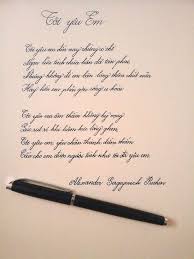 Tôi yêu Em
Tôi yêu em đến nay chừng có thể
Ngọn lửa tình chưa hẳn đã tàn phai
Nhưng không để em bận lòng thêm chút nữa
Hay hồn em phải gợn sóng u hoài
Tôi yêu em âm thầm không hy vọng
Lúc rụt rè khi hậm hực lòng ghen
Tôi yêu em, yêu chân thành đằm thắm
Cầu cho em được người tình như tôi đã yêu em
Alexander Sergeyevich Pushkin